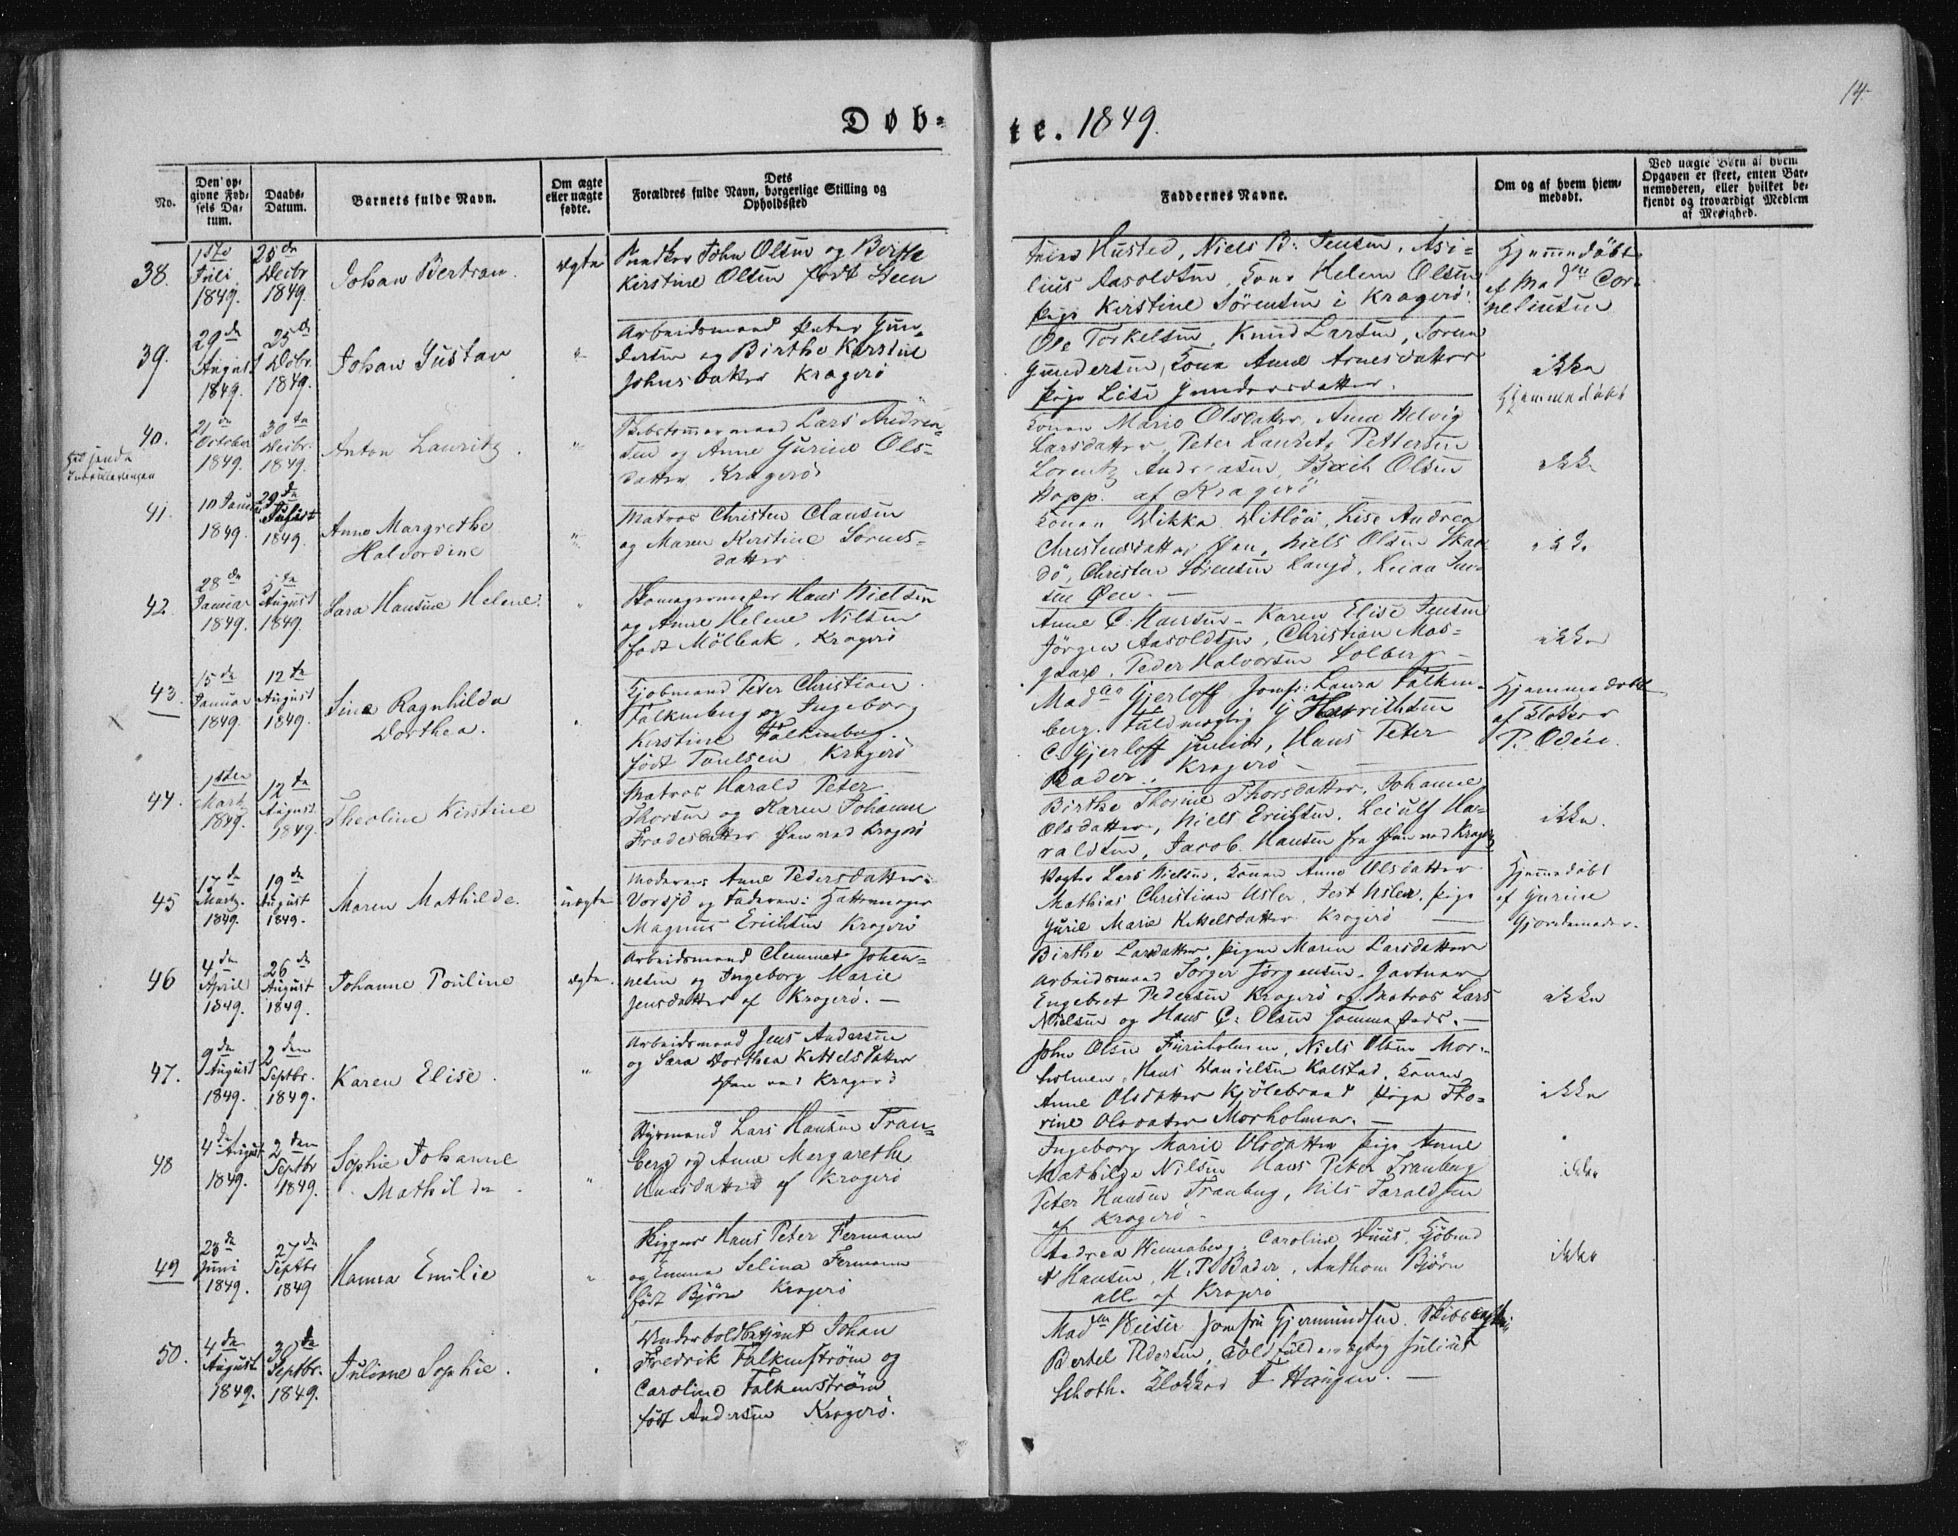 14.
Døb=
te. 1849.
No.
Den op-
givne Fød-
sels Da-
tum.
Daabs-
Datum.
Barnets fulde Navn.
Om ægte
eller uægte
fødte.
Dets
Forældres fulde Navn, borgerlige Stilling og
Opholdssted
Faddernes Navne.
Om og af hvem hjem-
medøbt.
Ved uægte Børn af hvem
Opgaven er skeet, enten Bar-
nemoderen, eller hvilket be-
kjendt og troværdigt Medlem
af Menighed.
38.
1ste
Juli
1849.
25de
Decbr
1849.
Johan Bertran.
Ægte
John Olsen og Birthe
Kirstine Olsen født Steen
Husted, Niels B: Jensen,
Aasoldsen, Kone Helene Olsen
Pige Kirstine Sörensen i Kragerö.
Hjemmedöbt
af Madm Cor-
neliusen
39.
29de
August
1849.
25de
Decbr.
1849.
Johan Gustav
"
Arbeidsmand Peter Gun-
dersen og Birthe Kirstine
Johnsdatter Kragerö
Ole Torkelsen, Knud Larsen, Soren
Gundersen, Kone Anne Arnesdatter
Pige Lise Gundersdatter.
ikke
Hjemmedöbt
40.
21de
October
1849.
30te
Decbr.
1849.
Anton Lauritz.
"
Lars Andrea-
sen og Anne Gurine Ols-
datter Kragerö
Konen Marie Olsdatter, Anne Helvig
Larsdatter, Peter Lauritz Pettersen
Lorentz Andreasen, Isach Olsen
Hopp. af Kragerö
ikke
41.
10 Januar
1849.
29de
1849.
Anne Margrethe
Halvordine
"
Matros Christen Clausen
og Maren Kirstine Sörens-
datter
Konen Vikka Ditlöv, Lise Andrea
Christensdatter Öen, Niels Olsen Skaa-
dö, Christen Sörensen Langö,
Öen. —
ikke
42.
28de
Januar
1849.
5te
August
1849.
Sara Hansine Helene.
"
Skomagermester Hans Nielsen
og Anne Helene Nilsen
født Mölbak, Kragerö
Anne C. Hansen - Karen Elise Jensen
Jörgen Aasoldsen, Christian Mas-
gaard, Peder Halvorsen Solberg -
ikke
43
15de
Januar
1849.
12te
August
1849.
Sina Ragnhilda
Dorthea.
"
Kjöbmand Peter Christian
Falkenberg og Ingeborg
Kirstine Falkenberg
født Paulsen Kragerö
Madm Gjerloff Jomfr: Laura Falken-
berg. Fuldmægtig G Henrichsen
C. Gjerloff junior, Hans Peter
Bader. Kragerö —
Hjemmedöbt
af Klokker
P. Ödén.
44.
1sten
Marts
1849.
12te
August
1849.
Theoline Kirstine
Matros Harald Peter
Thorsen og Karen Johanne
Frodesdatter Öen ved Kragerö
Birthe Thorine Thorsdatter, Johanne
Olsdatter, Niels Erichsen, Leiulf Ha-
raldsen, Jacob Hansen fra Öen ved Kragerö
ikke.
45
17de
Marts.
1849.
19de
August
1849.
Maren Mathilde.
uægte
Moderen: Anne Pedersdatter.
og Faderen: Hattemager
Magnus Erichsen Kragerö
Vægter Lars Nielsen. Konen Anne Olsdatter
Mathias Christian Usler, Jost Usler. Pige
Gurie Marie Kittelsdatter Kragerö —
Hjemmedöbt
af Gurine
Gjordemoder.
46
4de
April
1849.
26de
August
1849.
Johanne Pouline
ægte.
Arbeidsmand Clemmet Johan-
nesen og Ingeborg Marie
Jensdatter af Kragerö. —
Birthe Larsdatter, Pigen Maren Larsdatter
Arbeidsmand Törger Jörgensen. Gartner
Engebret Pedersen Kragerö og Matros Lars
Nielsen og Hans C: Olsen —
ikke
47.
9de
August
1849.
2den
Septbr.
1849.
Karen Elise.
"
Arbeidsmand Jens Andersen
og Sara Dorthea Kittelsdatter
Öen ved Kragerö
John Olsen Furuholmen, Niels Olsen Mor-
holmen, Hans Danielsen Kalstad, Konen
Anne Olsdatter Kjölebrand Pige Tho-
rine Olsdatter Morholmen. —
ikke
48
4de August
1849.
2den
Septbr
1849.
Sophie Johanne
Mathilde
"
Styrmand Lars Hansen Tran-
berg og Anne Margarethe
Hansdatter af Kragerö
Ingeborg Marie Olsdatter Pige Anne
Mathilde Nilsen Hans Peter Tranberg
Peter Hansen Tranberg, Nils Taraldsen
af Kragerö -
ikke
49
23de
Juni
1849.
27de
Septbr
1849
Hanna Emilie
"
Skipper Hans Peter Fermann
og Emma Selina Fermann
født Björn Kragerö
Andrea Wennberg. Caroline Duus. Kjöbmd
A Hansen, H. P. Bader, Anthon Björn
alle af Kragerö
ikke
50.
4de
August
1849.
30te
Septbr.
1849.
Juline Sophie.
"
Underboldbetjent Johan
Fredrik Falkenström og
Caroline Falkenström
født Andersen Kragerö.
Madm Weiser Jomfru Gjermundsen.
Bertel Pedersen, Toldfuldmægtig
Schoth. Klokker T Haugen. —